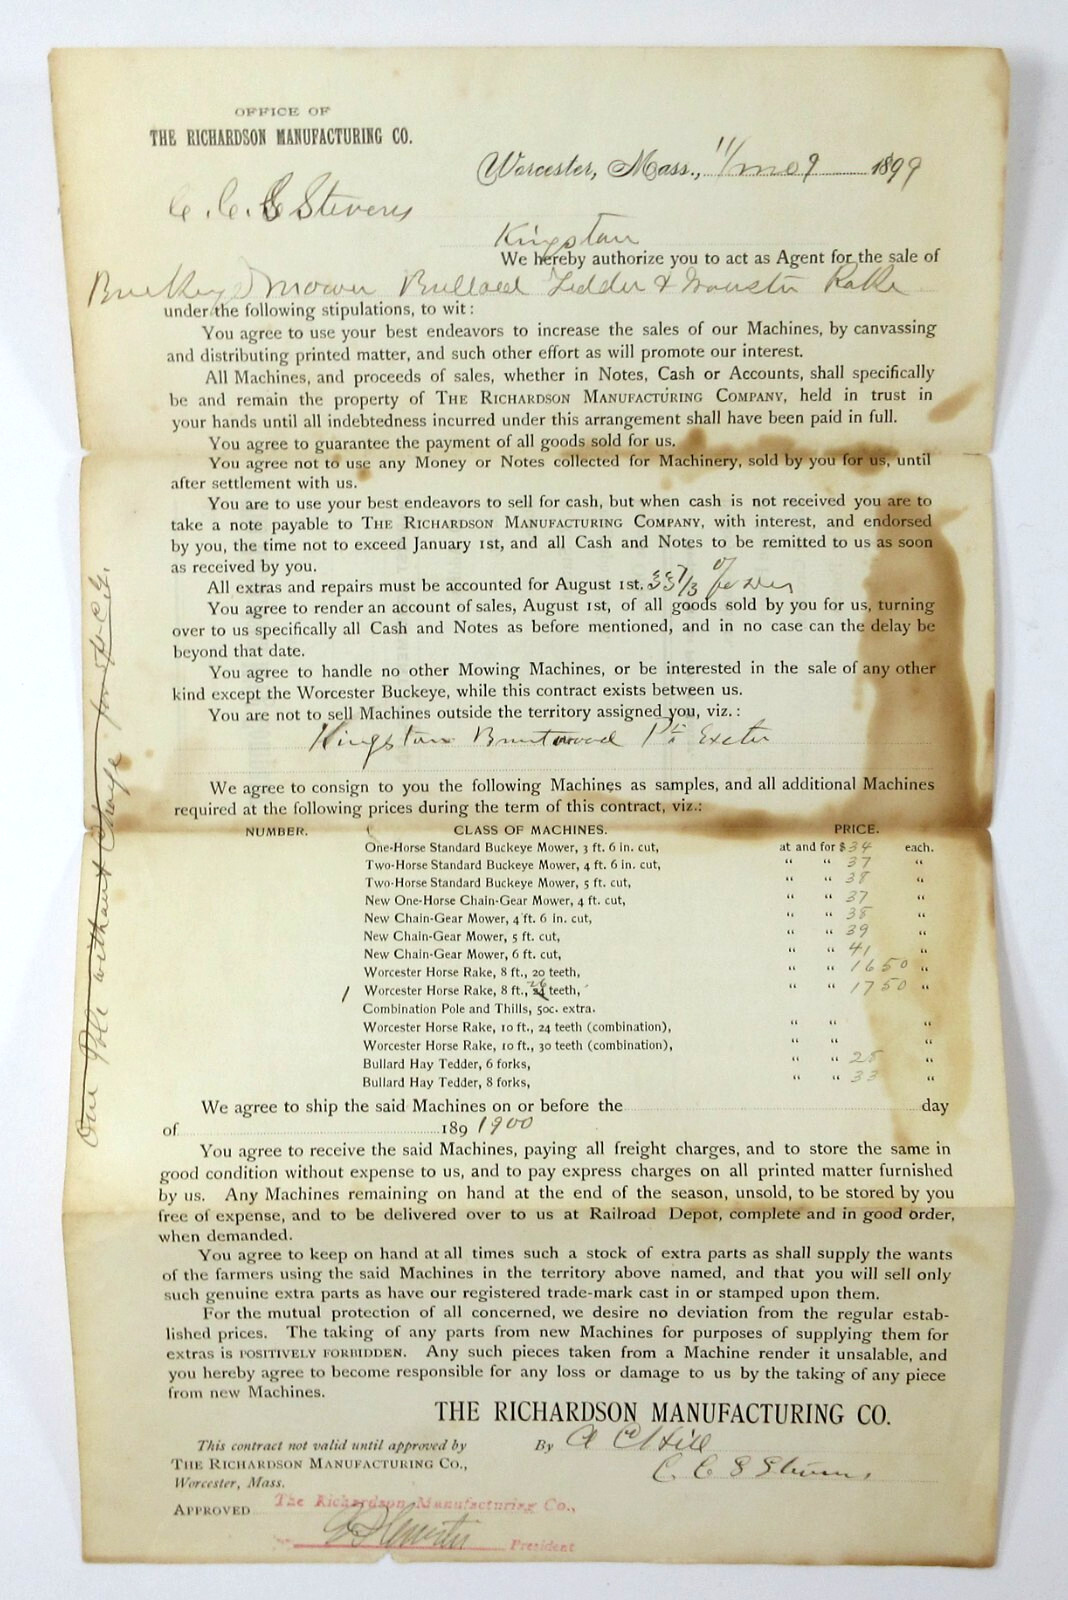 OFFICE OF
THE RICHARDSON MANUFACTURING CO.
Worcester, Mass., 11/mo 9 1899
C. C. S Stevens
Kingston
We hereby authorize you to act as Agent for the sale of
Buckeye Mower Bullard Tedder & Worcester Rake
under the following stipulations, to wit:
You agree to use your best endeavors to increase the sales of our Machines, by canvassing
and distributing printed matter, and such other effort as will promote our interest.
All Machines, and proceeds of sales, whether in Notes, Cash or Accounts, shall specifically
be and remain the property of THE RICHARDSON MANUFACTURING COMPANY, held in trust in
your hands until all indebtedness incurred under this arrangement shall have been paid in full.
You agree to guarantee the payment of all goods sold for us.
You agree not to use any Money or Notes collected for Machinery, sold by you for us, until
after settlement with us.
You are to use your best endeavors to sell for cash, but when cash is not received you are to
take a note payable to THE RICHARDSON MANUFACTURING COMPANY, with interest, and endorsed
by you, the time not to exceed January 1st, and all Cash and Notes to be remitted to us as soon
as received by you.
All extras and repairs must be accounted for August 1st. 33 1/3 %
You agree to render an account of sales, August 1st, of all goods sold by you for us, turning
over to us specifically all Cash and Notes as before mentioned, and in no case can the delay be
beyond that date.
You agree to handle no other Mowing Machines, or be interested in the sale of any other
kind except the Worcester Buckeye, while this contract exists between us.
You are not to sell Machines outside the territory assigned you, viz.:
Kingston Brentwood Pt Exeter
We agree to consign to you the following Machines as samples, and all additional Machines
required at the following prices during the term of this contract, viz.:
NUMBER. CLASS OF MACHINES. PRICE.
One-Horse Standard Buckeye Mower, 3 ft. 6 in. cut, at and for $34 each.
Two-Horse Standard Buckeye Mower, 4 ft. 6 in. cut, " " 37 "
Two-Horse Standard Buckeye Mower, 5 ft. cut, " " 38 "
New One-Horse Chain-Gear Mower, 4 ft. cut, " " 37 "
New Chain-Gear Mower, 4 ft. 6 in. cut, " " 38 "
New Chain-Gear Mower, 5 ft. cut, " " 39 "
New Chain-Gear Mower, 6 ft. cut, " " 41 "
Worcester Horse Rake, 8 ft., 20 teeth, " " 16 50 "
1 Worcester Horse Rake, 8 ft., 24 26 teeth, " " 17 50 "
Combination Pole and Thills, 50c. extra.
Worcester Horse Rake, 10 ft., 24 teeth (combination), " " "
Worcester Horse Rake, 10 ft., 30 teeth (combination), " " "
Bullard Hay Tedder, 6 forks, " " 28 "
Bullard Hay Tedder, 8 forks, " " 33 "
We agree to ship the said Machines on or before the day
of 189 1900
You agree to receive the said Machines, paying all freight charges, and to store the same in
good condition without expense to us, and to pay express charges on all printed matter furnished
by us. Any Machines remaining on hand at the end of the season, unsold, to be stored by you
free of expense, and to be delivered over to us at Railroad Depot, complete and in good order,
when demanded.
You agree to keep on hand at all times such a stock of extra parts as shall supply the wants
of the farmers using the said Machines in the territory above named, and that you will sell only
such genuine extra parts as have our registered trade-mark cast in or stamped upon them.
For the mutual protection of all concerned, we desire no deviation from the regular estab-
lished prices. The taking of any parts from new Machines for purposes of supplying them for
extras is POSITIVELY FORBIDDEN. Any such pieces taken from a Machine render it unsalable, and
you hereby agree to become responsible for any loss or damage to us by the taking of any piece
from new Machines.
THE RICHARDSON MANUFACTURING CO.
This contract not valid until approved by
THE RICHARDSON MANUFACTURING CO.,
Worcester, Mass.
By A C Hill
C. C S Stevens
APPROVED The Richardson Manufacturing Co.,
President
One Pole without Charge for